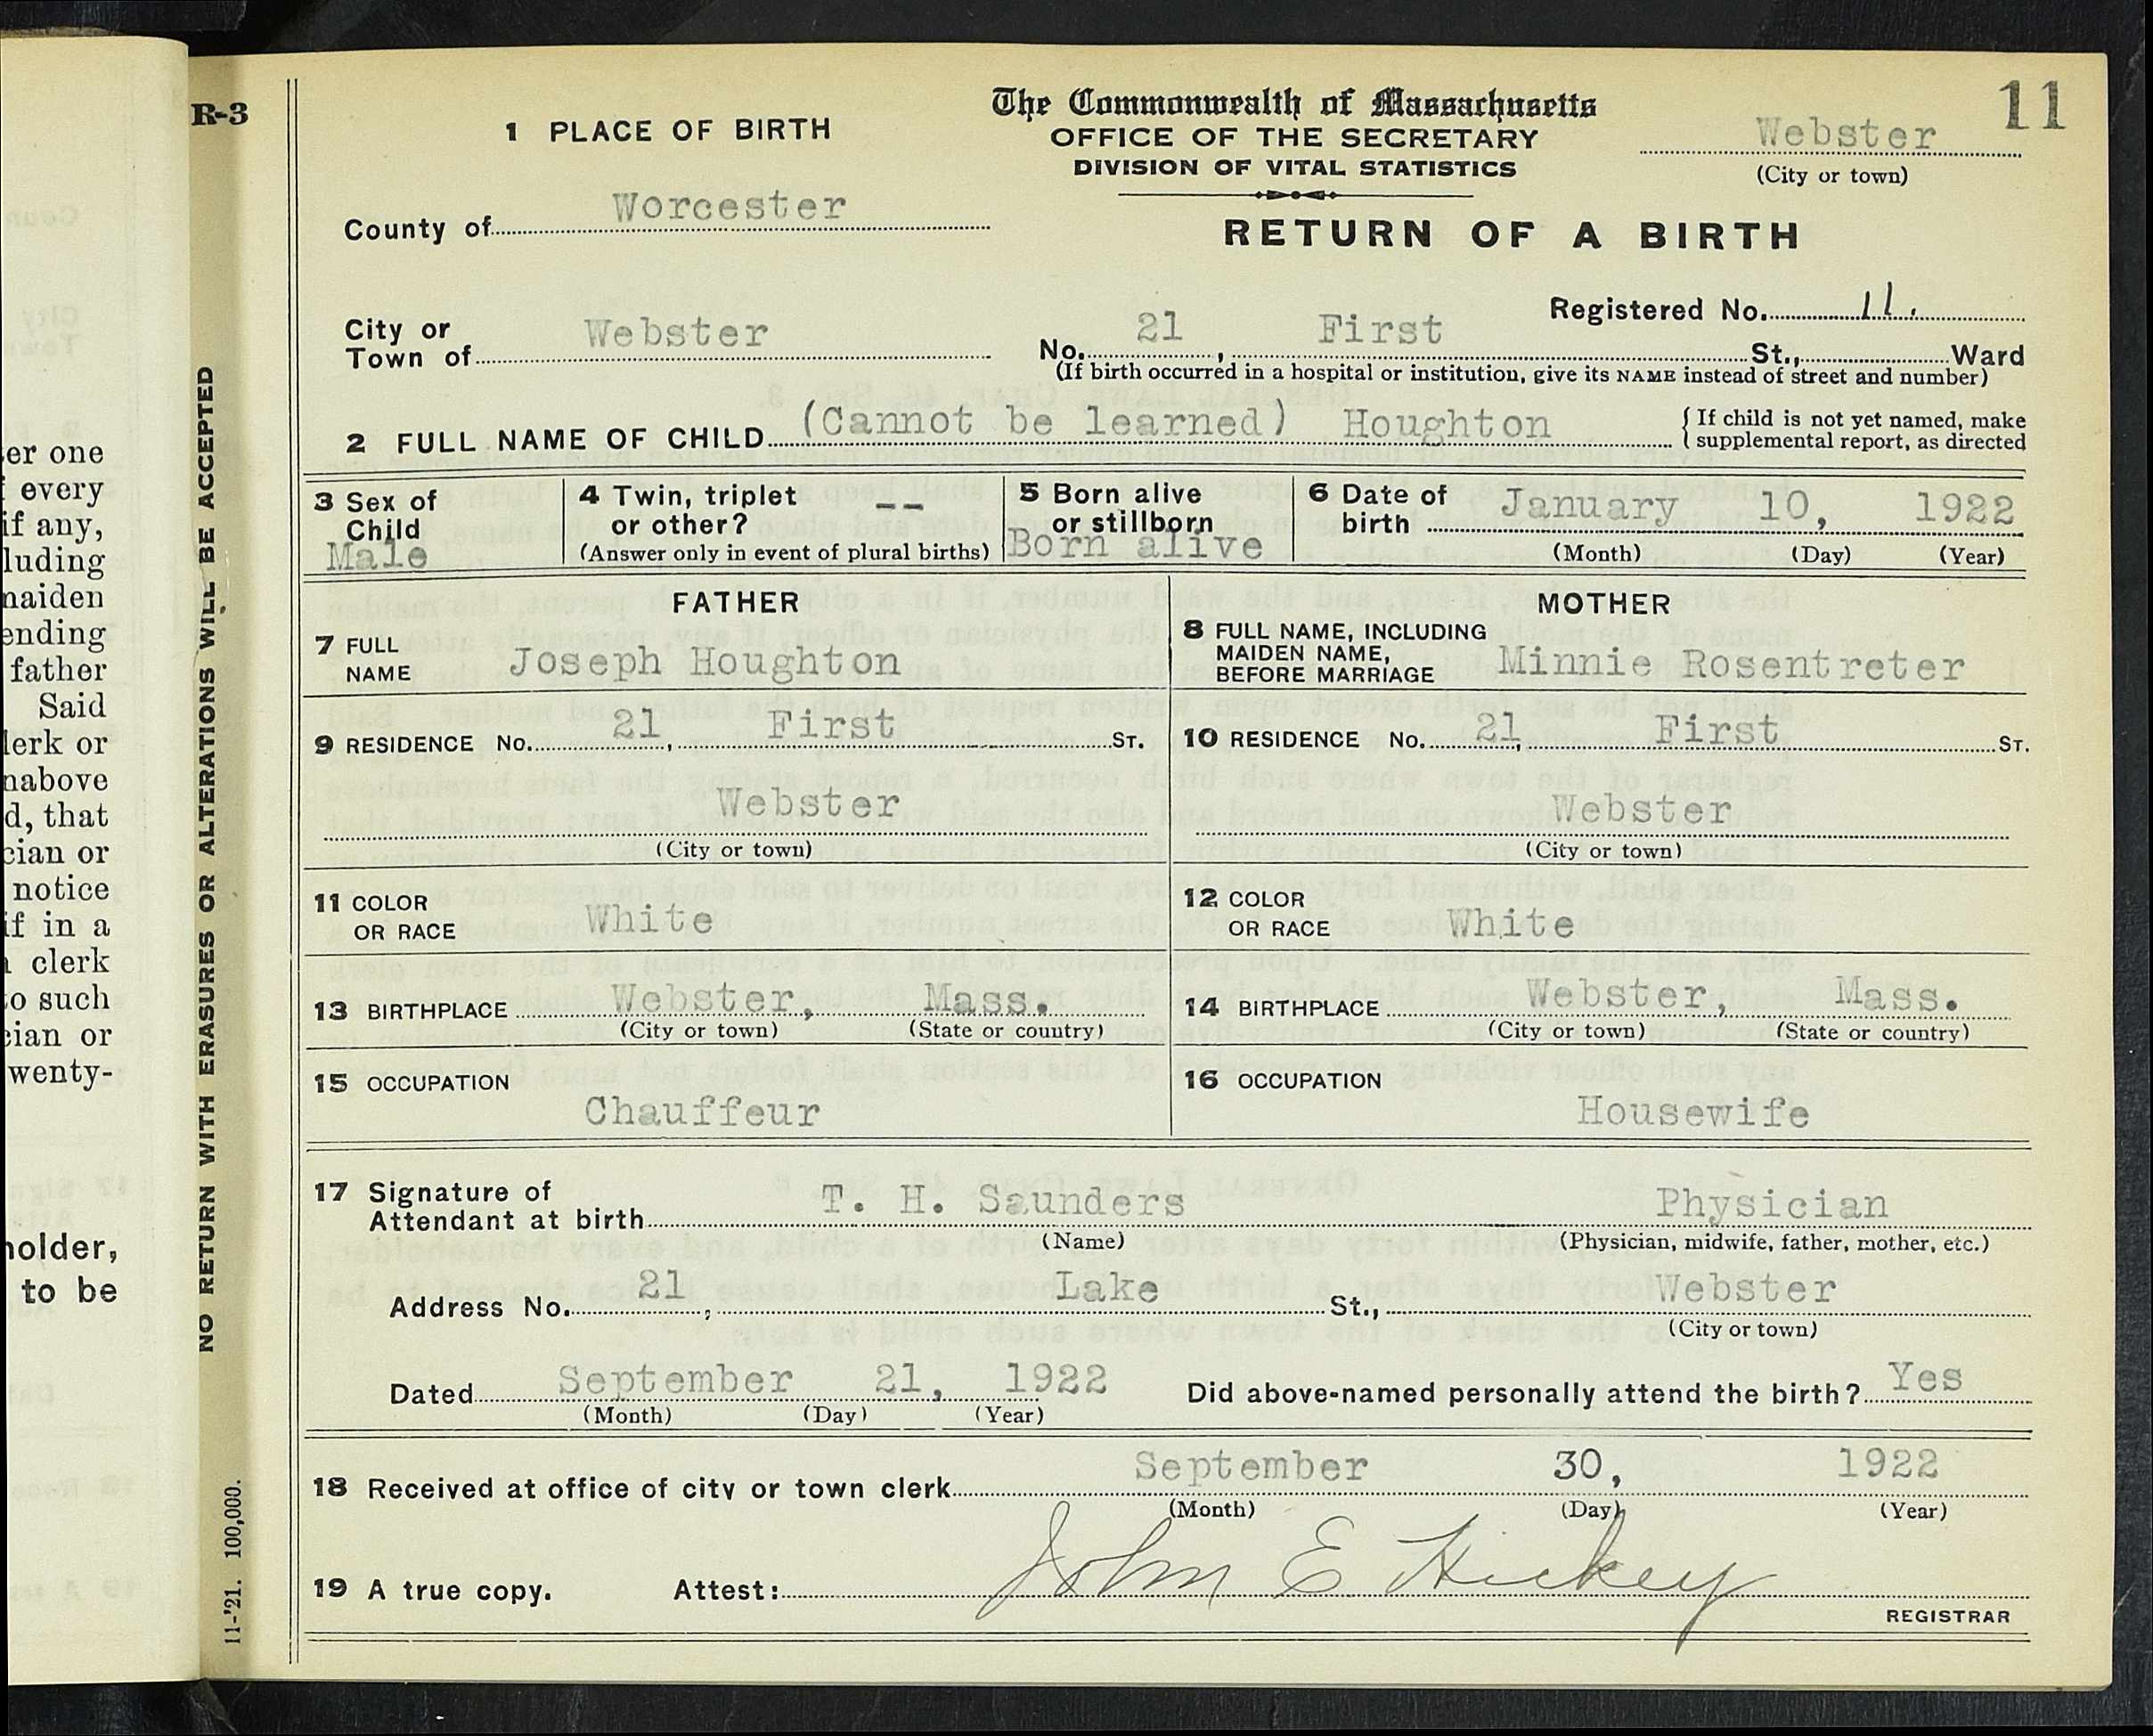 er one
every
if any,
luding
naiden
ending
father
Said
lerk or
nabove
d, that
cian or
notice
if in a
clerk
o such
cian or
wenty-
holder,
to be
R-3
NO RETURN WITH ERASURES OR ALTERATIONS WILL BE ACCEPTED
11-'21. 100,000.
11
The Commonwealth of Massachusetts
OFFICE OF THE SECRETARY
DIVISION OF VITAL STATISTICS
Webster
(City or town)
1 PLACE OF BIRTH
County of Worcester
RETURN OF A BIRTH
Registered No. 11.
City or
Town of Webster
No. 21, First St., Ward
(If birth occurred in a hospital or institution, give its NAME instead of street and number)
2 FULL NAME OF CHILD (Cannot be learned) Houghton
{ If child is not yet named, make
supplemental report, as directed
3 Sex of
Child
Male
4 Twin, triplet
or other? --
(Answer only in event of plural births)
5 Born alive
or stillborn
Born alive
6 Date of
birth January 10, 1922
(Month) (Day) (Year)
FATHER
7 FULL
NAME Joseph Houghton
9 RESIDENCE No. 21, First ST.
Webster
(City or town)
11 COLOR
OR RACE White
13 BIRTHPLACE Webster, Mass.
(City or town) (State or country)
15 OCCUPATION
Chauffeur
MOTHER
8 FULL NAME, INCLUDING
MAIDEN NAME,
BEFORE MARRIAGE Minnie Rosentreter
10 RESIDENCE No. 21, First ST.
Webster
(City or town)
12 COLOR
OR RACE White
14 BIRTHPLACE Webster, Mass.
(City or town) (State or country)
16 OCCUPATION
Housewife
17 Signature of
Attendant at birth T. H. Saunders Physician
(Name) (Physician, midwife, father, mother, etc.)
Address No. 21, Lake St., Webster
(City or town)
Dated September 21, 1922 Did above-named personally attend the birth? Yes
(Month) (Day) (Year)
18 Received at office of city or town clerk September 30, 1922
(Month) (Day) (Year)
19 A true copy. Attest: John E Hickey
REGISTRAR